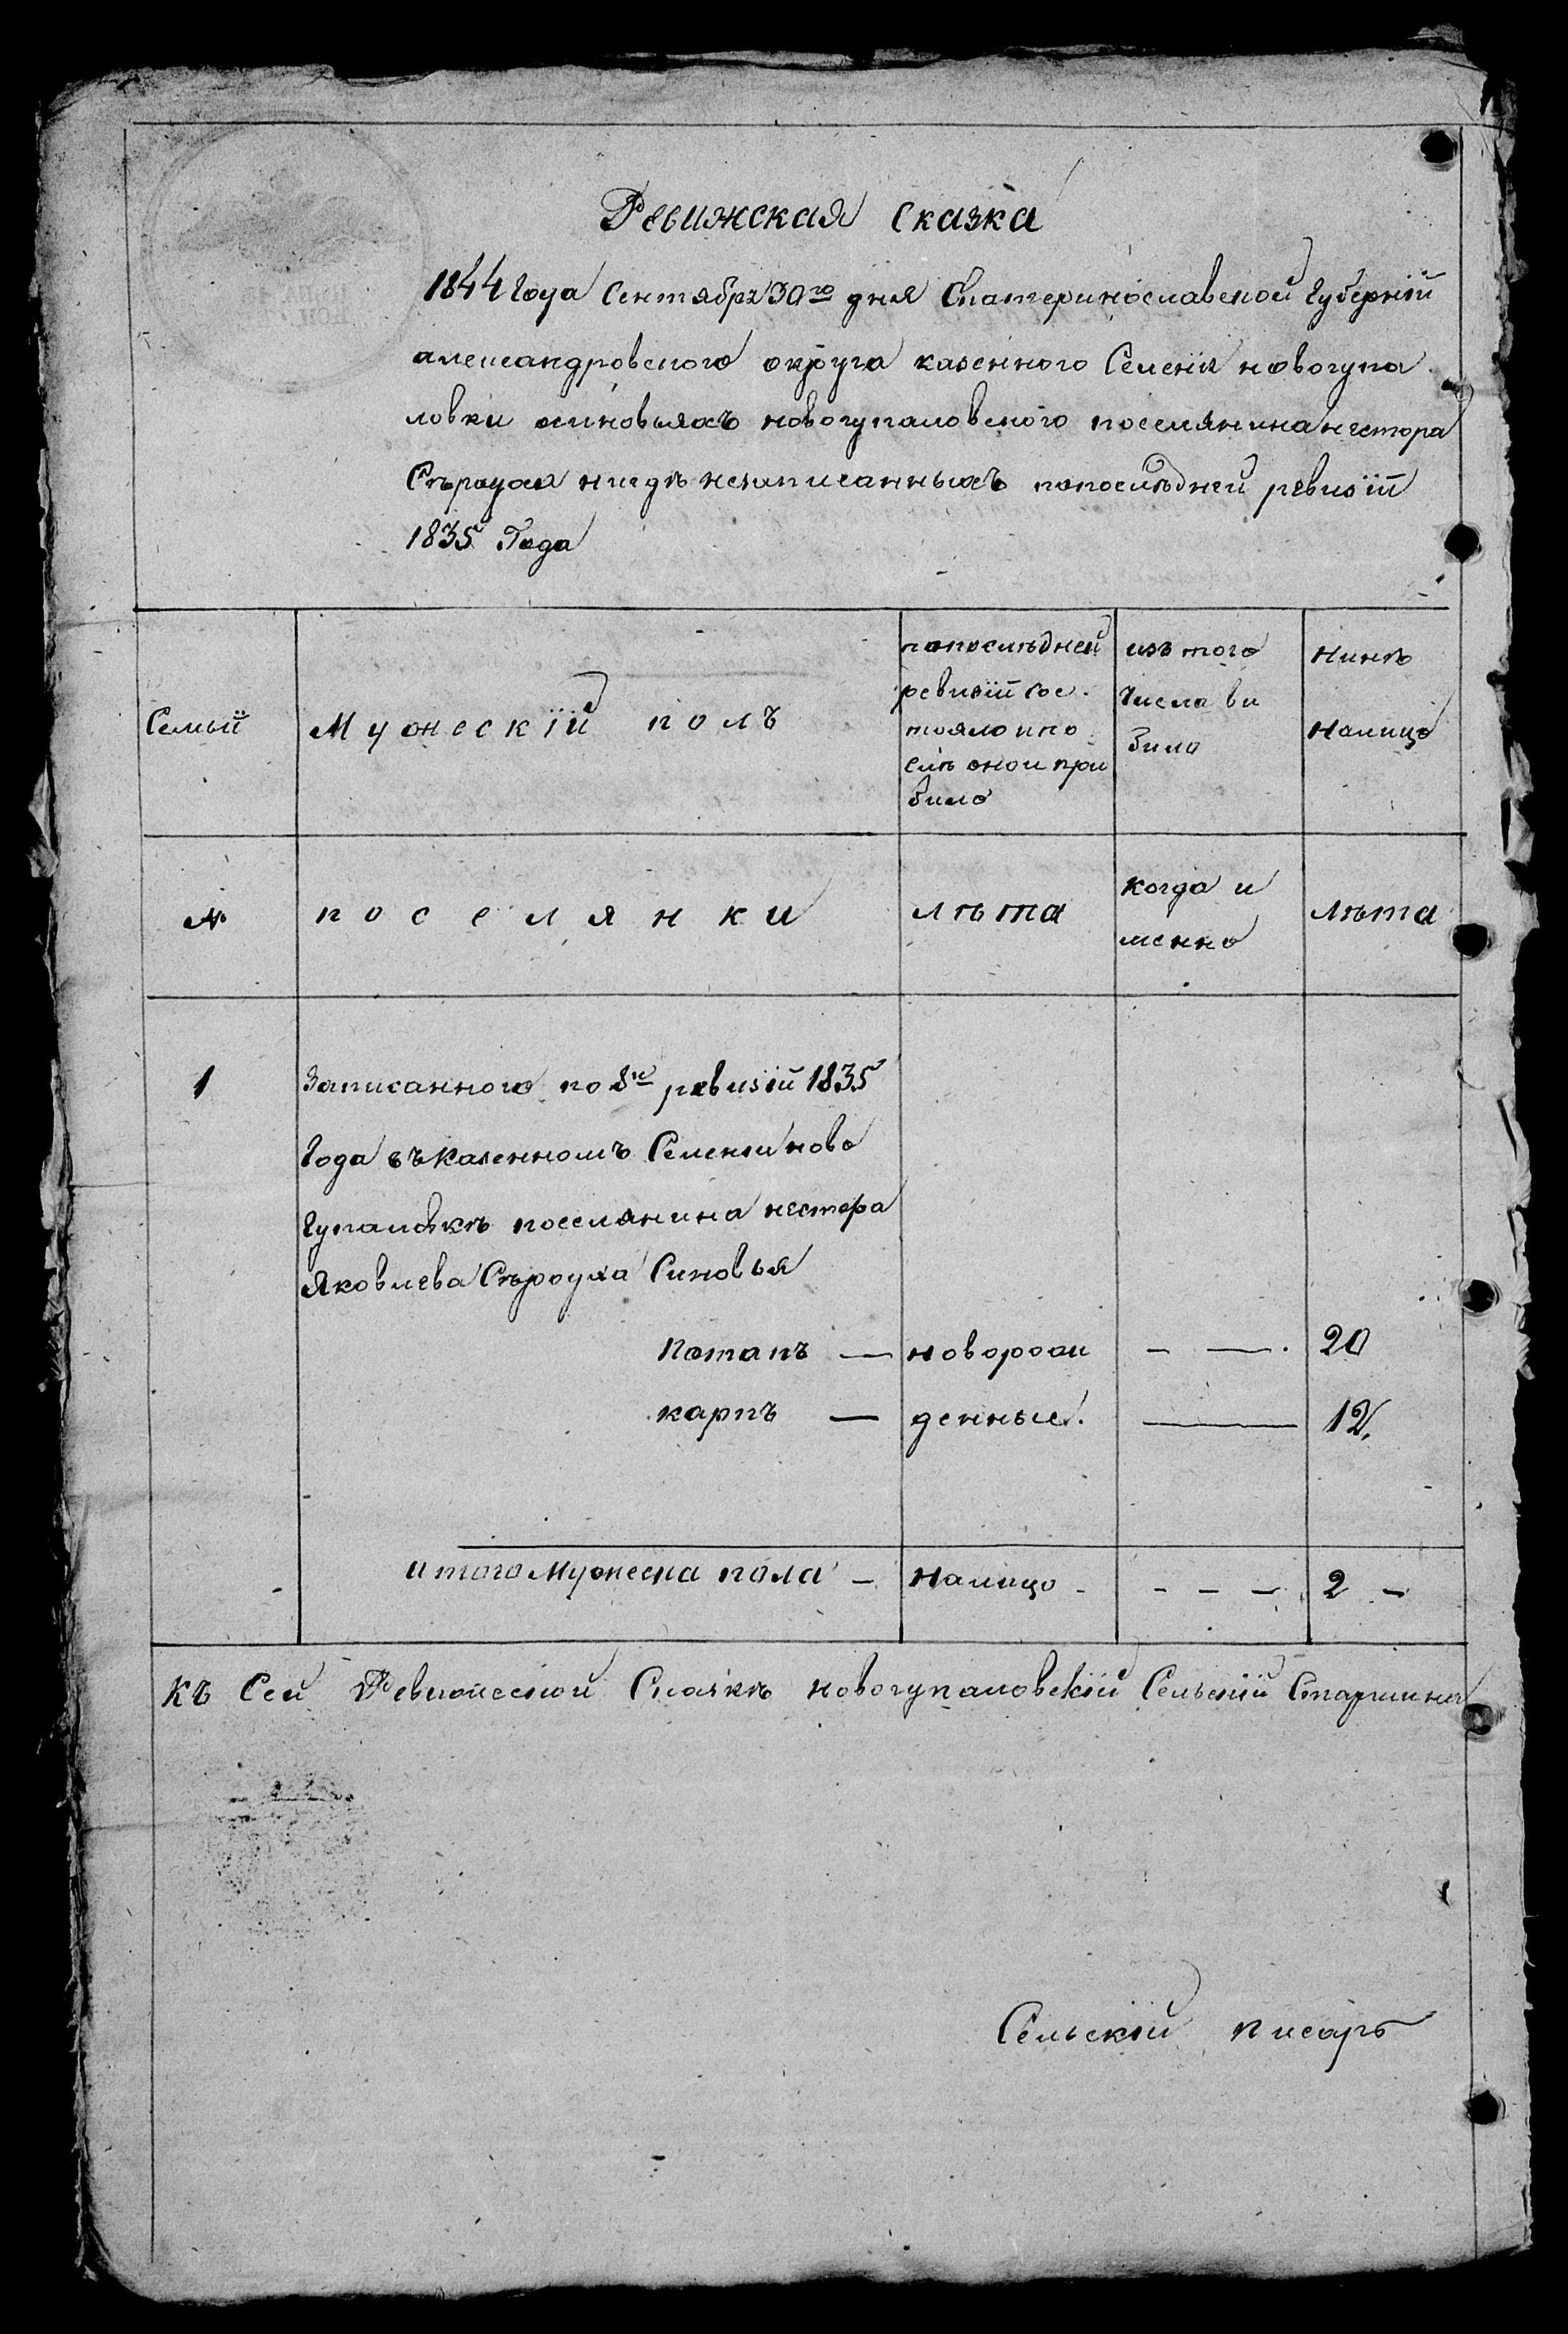 Ревижская Сказка
1844 Года Сентября 30го дня Екатеринославской Губернїй
александровского округа казенного Селенїя новогупа
ловки осиновьяхъ новогупаловского поселянина нестора
Сѣроуха нигдѣ незаписанныхъ попослѣдней ревизїй
1835 Года
Семьй
Мужескїй полъ
попослѣдней
ревизїй сос
тояло ипо
слѣ оной при
било
изъ того
Числа ви
било
Нинѣ
Налицо
№
поселянки
лѣта
когда и
менно
Лѣта
1
Записанного по 8й ревизїй 1835
Года въ Казенномъ Селенїи ново
Гупаловкѣ поселянина нестера
Яковлева Сѣроуха Синовья
Потапъ — новорож — — 20
карпъ — денные. — 12.
итого Мужеска пола — Налицо - - - - 2 -
Къ Сей Ревижеской Сказкѣ новогупаловскїй Сельскїй Старшина
Сельскїй писарь